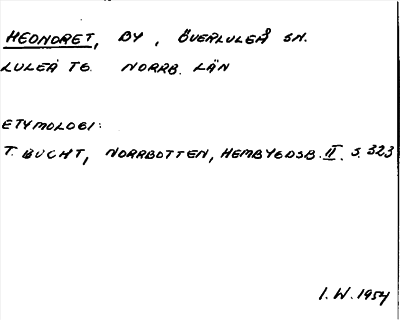 HEDNORET, BY, ÖVERLULEÅ SN.
LULEÅ TG. NORRB. LÄN
ETYMOLOGI:
T. BUCHT, NORRBOTTEN, HEMBYGDSB. II. S. 323
I.W. 1954